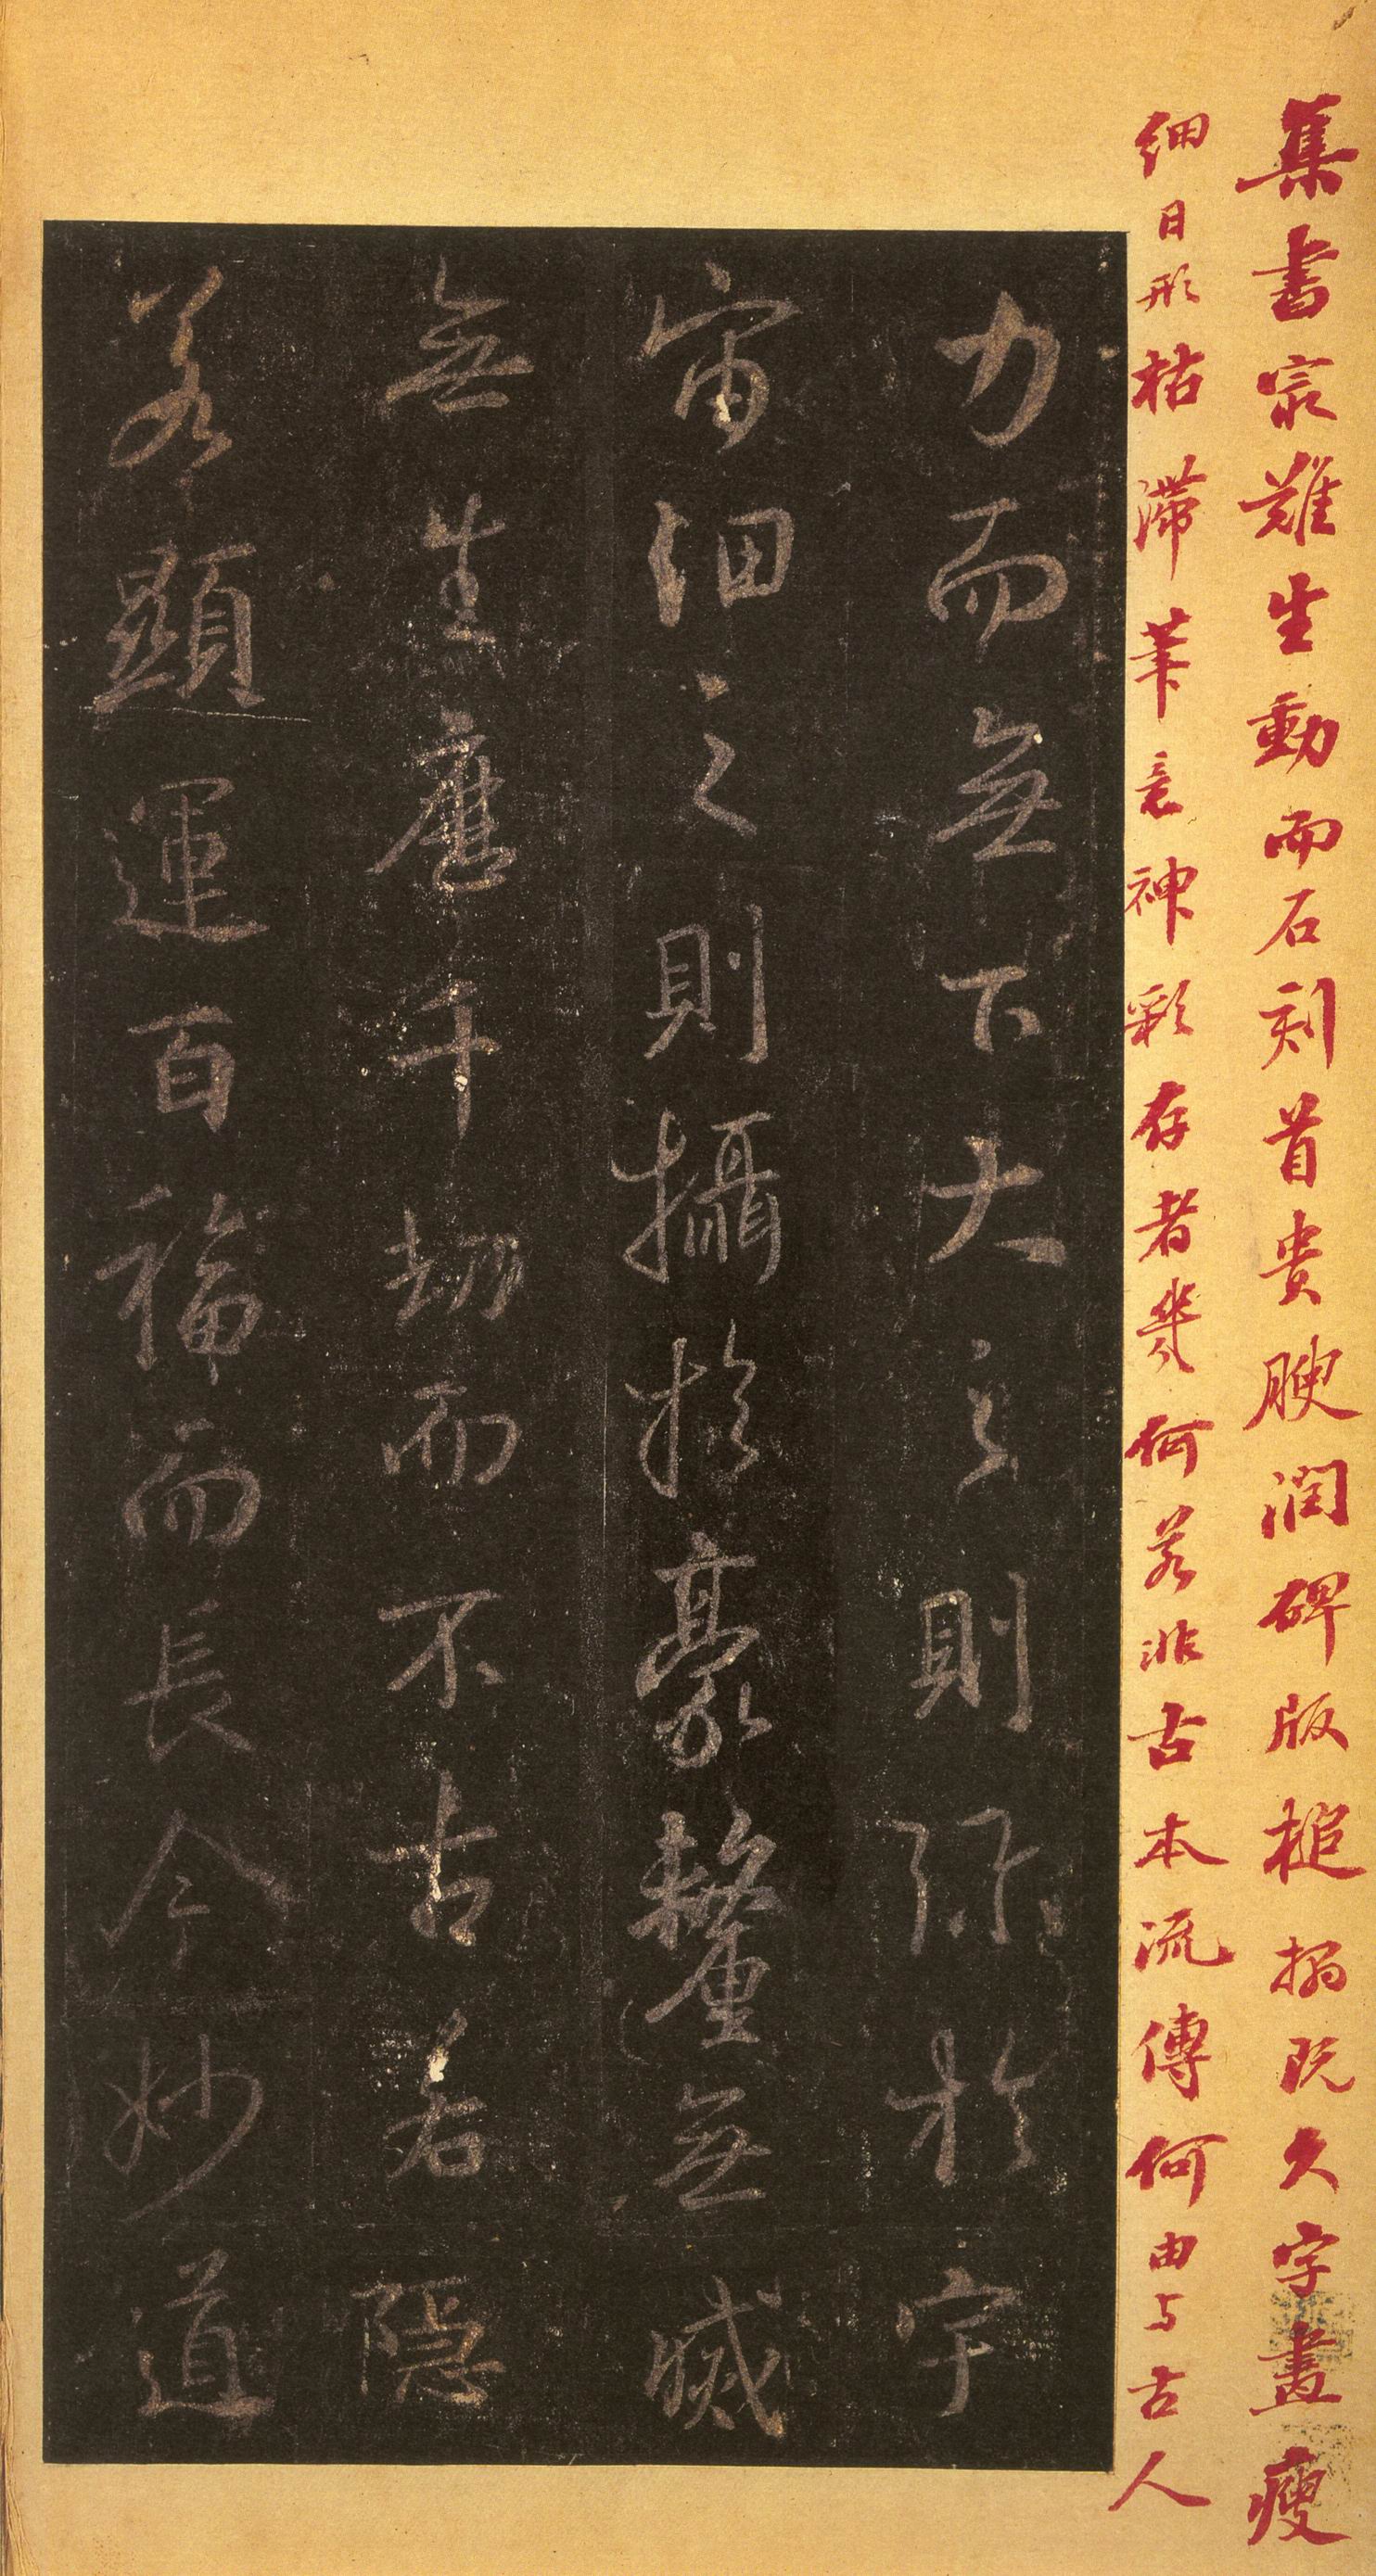 集書最難生動而石刻首貴腴潤碑版槌搨既久字畫瘦
細日形枯滯筆意神彩存者幾何若非古本流傳何由与古人
力而無下大之則弥於宇
宙細之則攝於豪釐無滅
無生歷千劫而不古若隱
若顯運百福而長今妙道